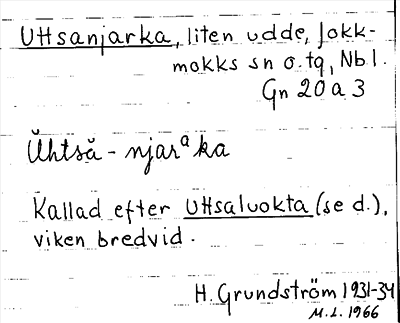 Uttsanjarka, liten udde, Jokk-
mokks sn o. tg, Nbl.
Gn 20 a 3
Ŭhtsă-njarᵃka
Kallad efter Uttsaluokta (se d.),
viken bredvid.
H. Grundström 1931-34
M.L. 1966